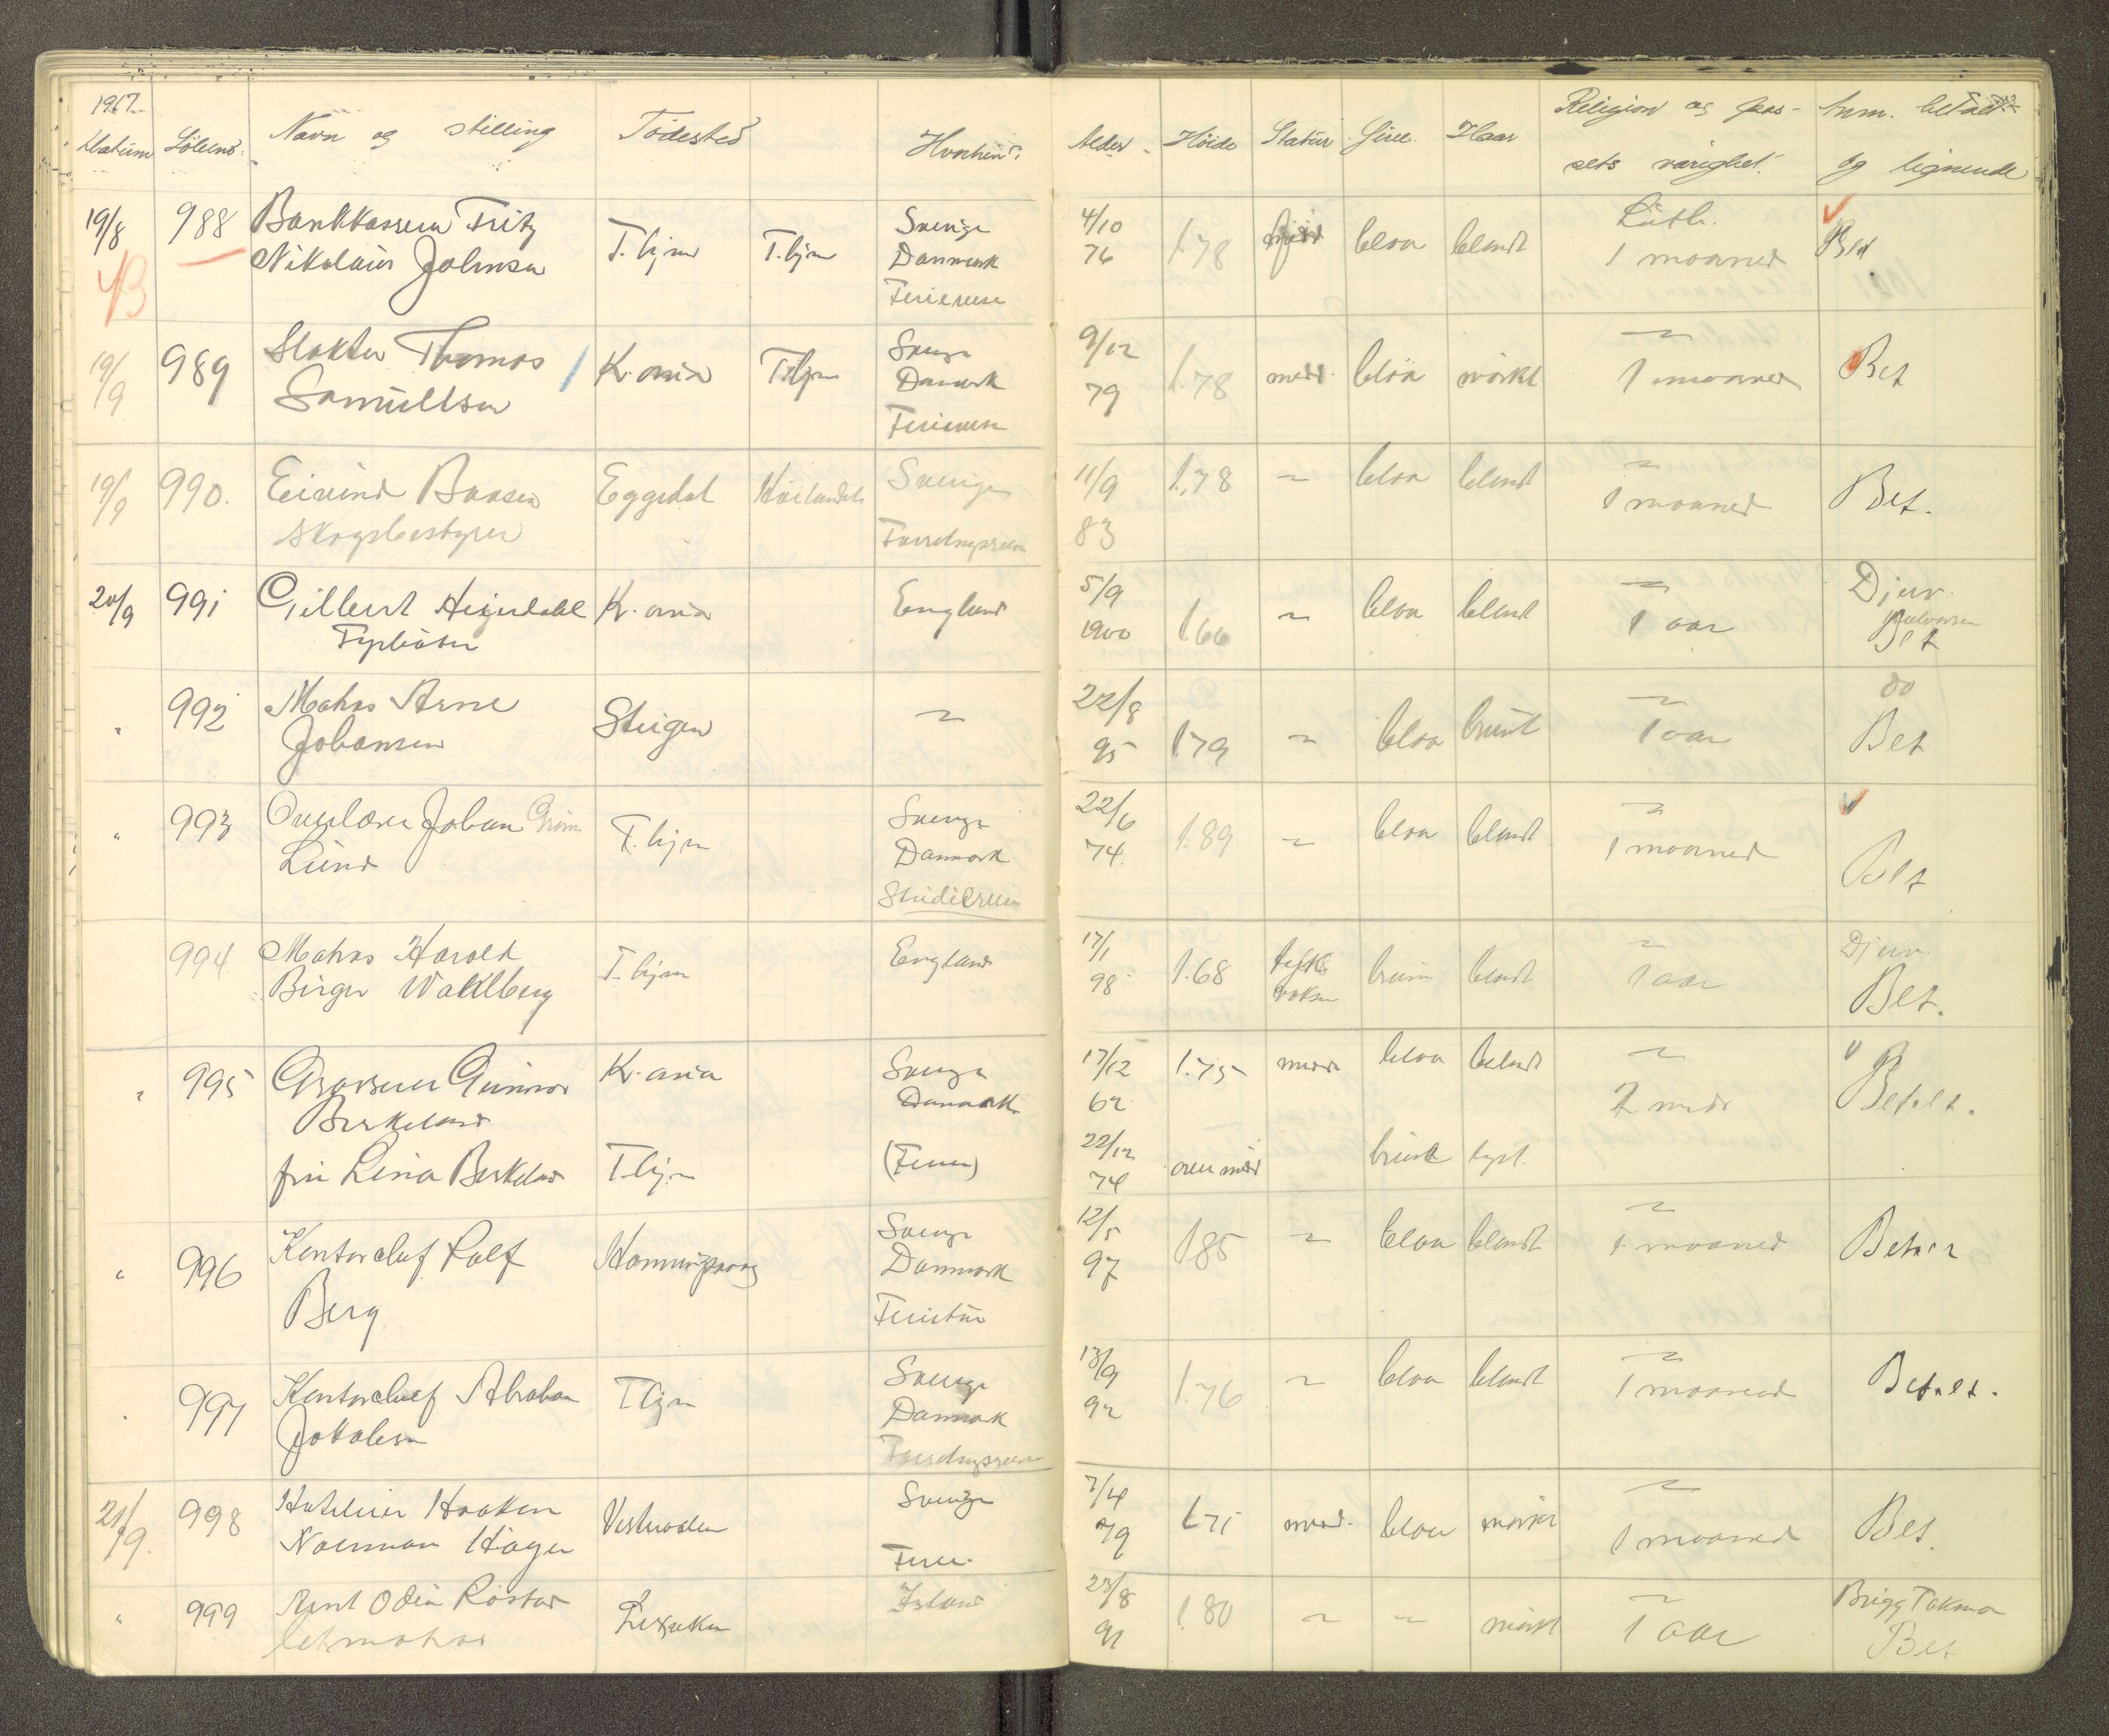 Datum Löbenr. Navn og stilling Födested Hvorhen Alder Höide Statur Öine Haar Religion og pas- Anm. betalt
sets varighet. og lignende
19/8 988 Bankkasserer Fritz T.hjm T.hjm Sverige 4/10 1.78 blaa blondt Luth. Bet
Nikolaus Johnsen Danmark 76 1 maaned
Feriereise
19/9 989 Slakter Thomas Kr.ania T.hjm Sverige 9/12 1.78 midd. blaa mörkt ~ Bet
Samuelsen Danmark 79 1 maaned
Feriereise
19/9 990. Eivind Baasen Eggedal Sverige 11/9 1.78 ~ blaa blondt ~ Bet.
Skogsbestyrer Forretningsreise 83 1 maaned
20/9 991 Gilbert Kr.ania England 5/9 1.66 ~ blaa blondt ~ Djerv.
Fyrböter 1900 1 aar Halvorsen
Bet
" 992 Matros Arne Steigen ~ 22/8 1.79 ~ blaa brunt ~ do
Johansen 95 1 aar Bet
" 993 Overlærer Johan Grim T.hjm Sverige 22/6 1.89 ~ blaa blondt ~
Lund Danmark 74. 1 maaned Bet
Studiereise
994 Matros Harald T.hjm England 17/1 1.68 brun blondt ~ Djerv.
Birger Wahlberg 98 voksen 1 aar Bet.
" 995 Grosserer Gunnar Kr.ania Sverige 17/12 1.75 midd blaa blondt ~
Berkeland Danmark 62 2 mdr Betalt.
fru Lina Berkeland T.hjm (Ferie) 22/12 over mid brune lyst.
74
" 996 Kontorchef Rolf Honningsvaag Sverige 12/5 1.85 ~ blaa blondt ~ Betalt
Berg Danmark 97 1 maaned
Ferietur
997 Kontorchef Abraham T.hjm Sverige 13/9 1.76 ~ blaa blondt ~ Betalt.
Jakobsen Danmark 92 1 maaned
Forretningsreise
21/9. 998 Hotelier Haakon Sverige 7/4 1.71 midd. blaa mörkt ~ Bet.
Norman Hagen Ferie. 79 1 maaned
" 999 Arnt Odin Röstad Leksviken Island 23/8 1.80 ~ ~ mörkt ~ Brigg
letmatros 91 1 aar Bet